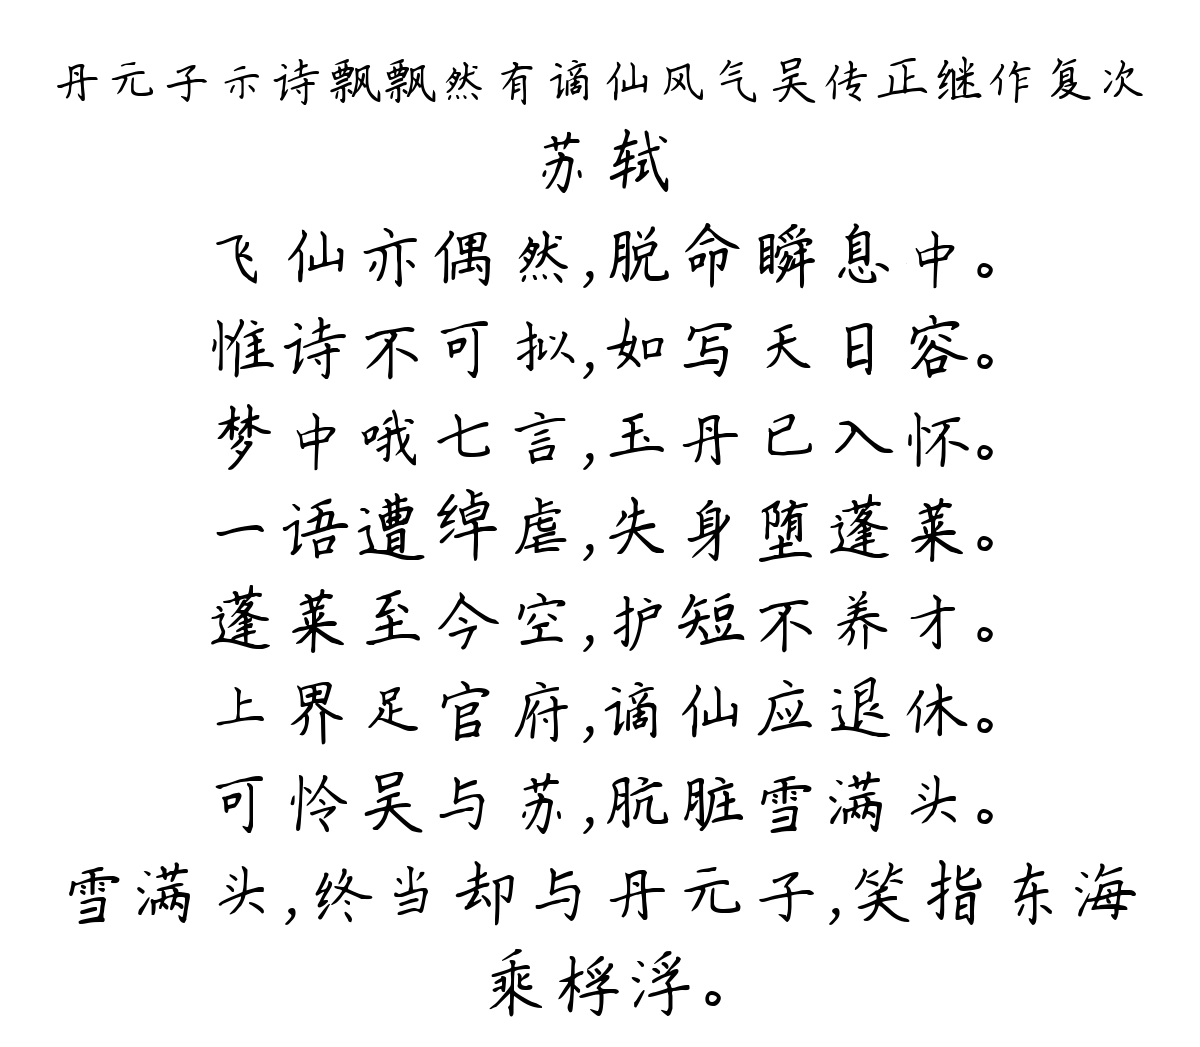 丹元子示诗飘飘然有谪仙风气吴传正继作复次
苏轼
飞仙亦偶然,脱命瞬息中。
惟诗不可拟,如写天日容。
梦中哦七言,玉丹已入怀。
一语遭绰虐,失身堕蓬莱。
蓬莱至今空,护短不养才。
上界足官府,谪仙应退休。
可怜吴与苏,肮脏雪满头。
雪满头,终当却与丹元子,笑指东海
乘桴浮。